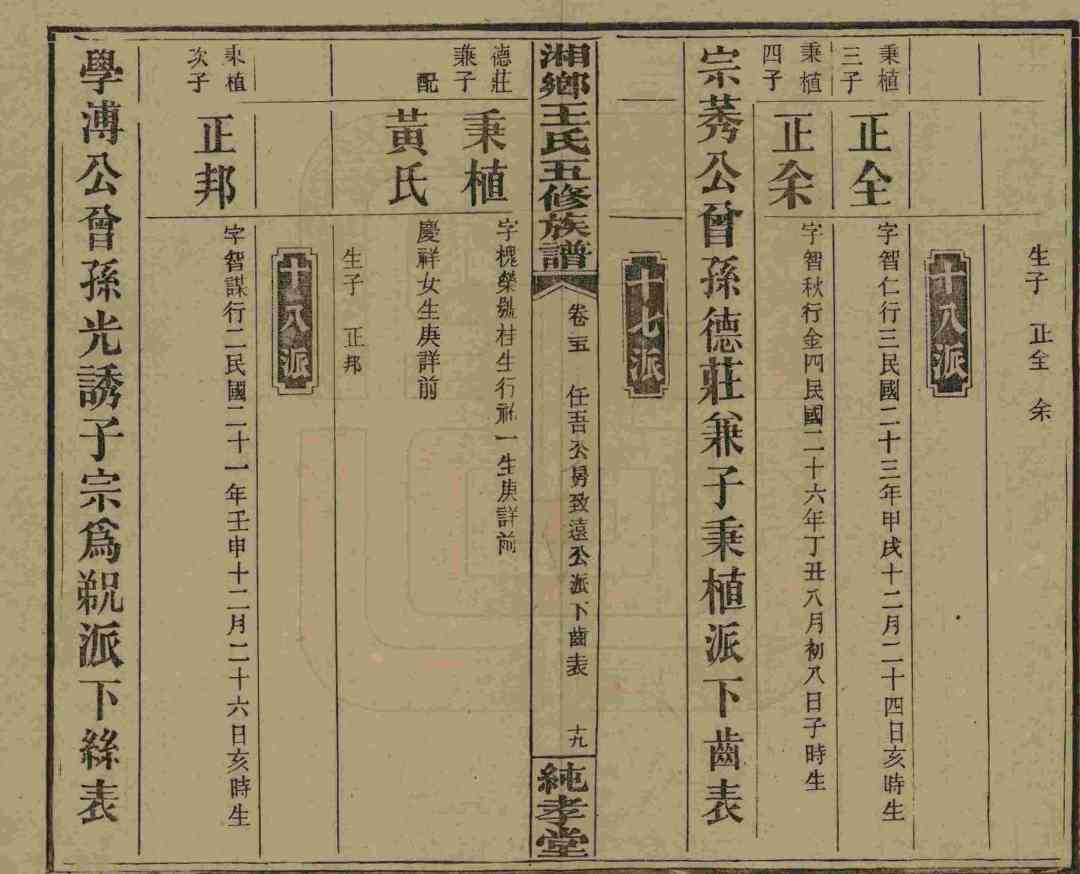 生子 正全 余
十八派
秉植三子
正全
字智仁行三民國二十三年甲戌十二月二十四日亥時生
秉植四子
正余
字智秋行金四民國二十六年丁丑八月初八日子時生
宗莠公曾孫德莊兼子秉植派下齒表
十七派
湘鄉王氏五修族譜
卷五
任吾公房致遠公派下齒表
十九
純孝堂
德莊兼子
秉植
字槐榮號桂生行 一生庚詳前
配
黃氏
慶祥女生庚詳前
生子 正邦
十八派
秉植次子
正邦
字智謀行二民國二十一年壬申十二月二十六日亥時生
學溥公曾孫光誘子宗為 派下絲表